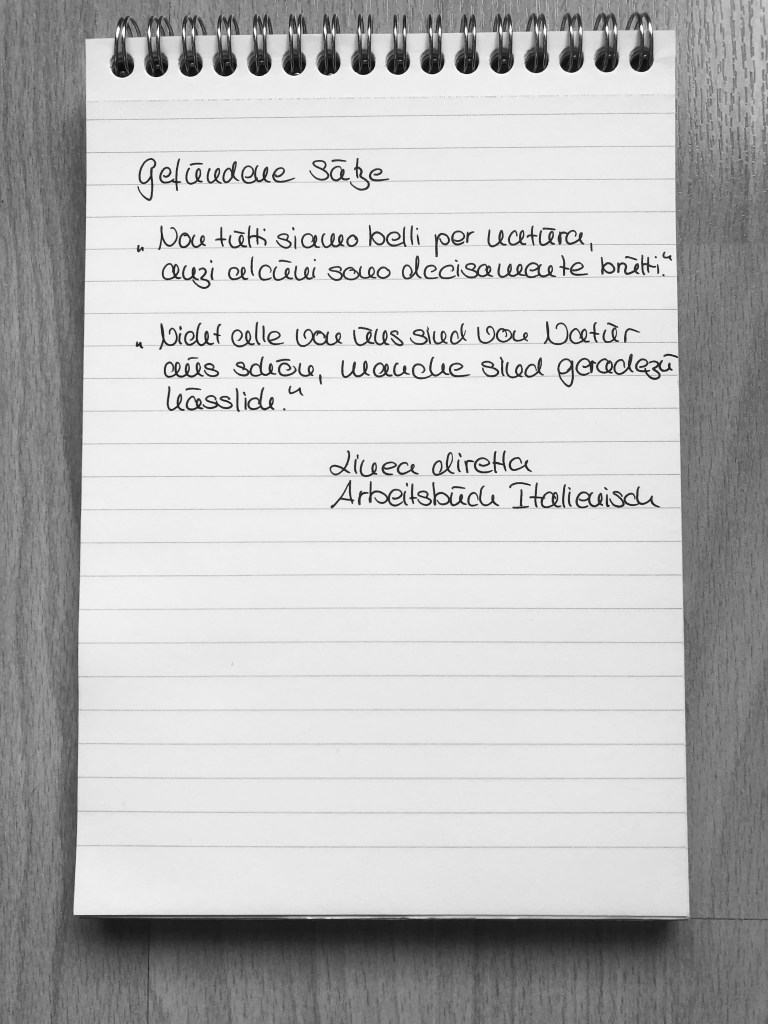 Gefundene Sätze
„Non tutti siamo belli per natura,
anzi alcuni sono decisamente brutti.“
„Nicht alle von uns sind von Natur
aus schön, manche sind geradezu
hässlich.“
Linea diretta
Arbeitsbuch Italienisch